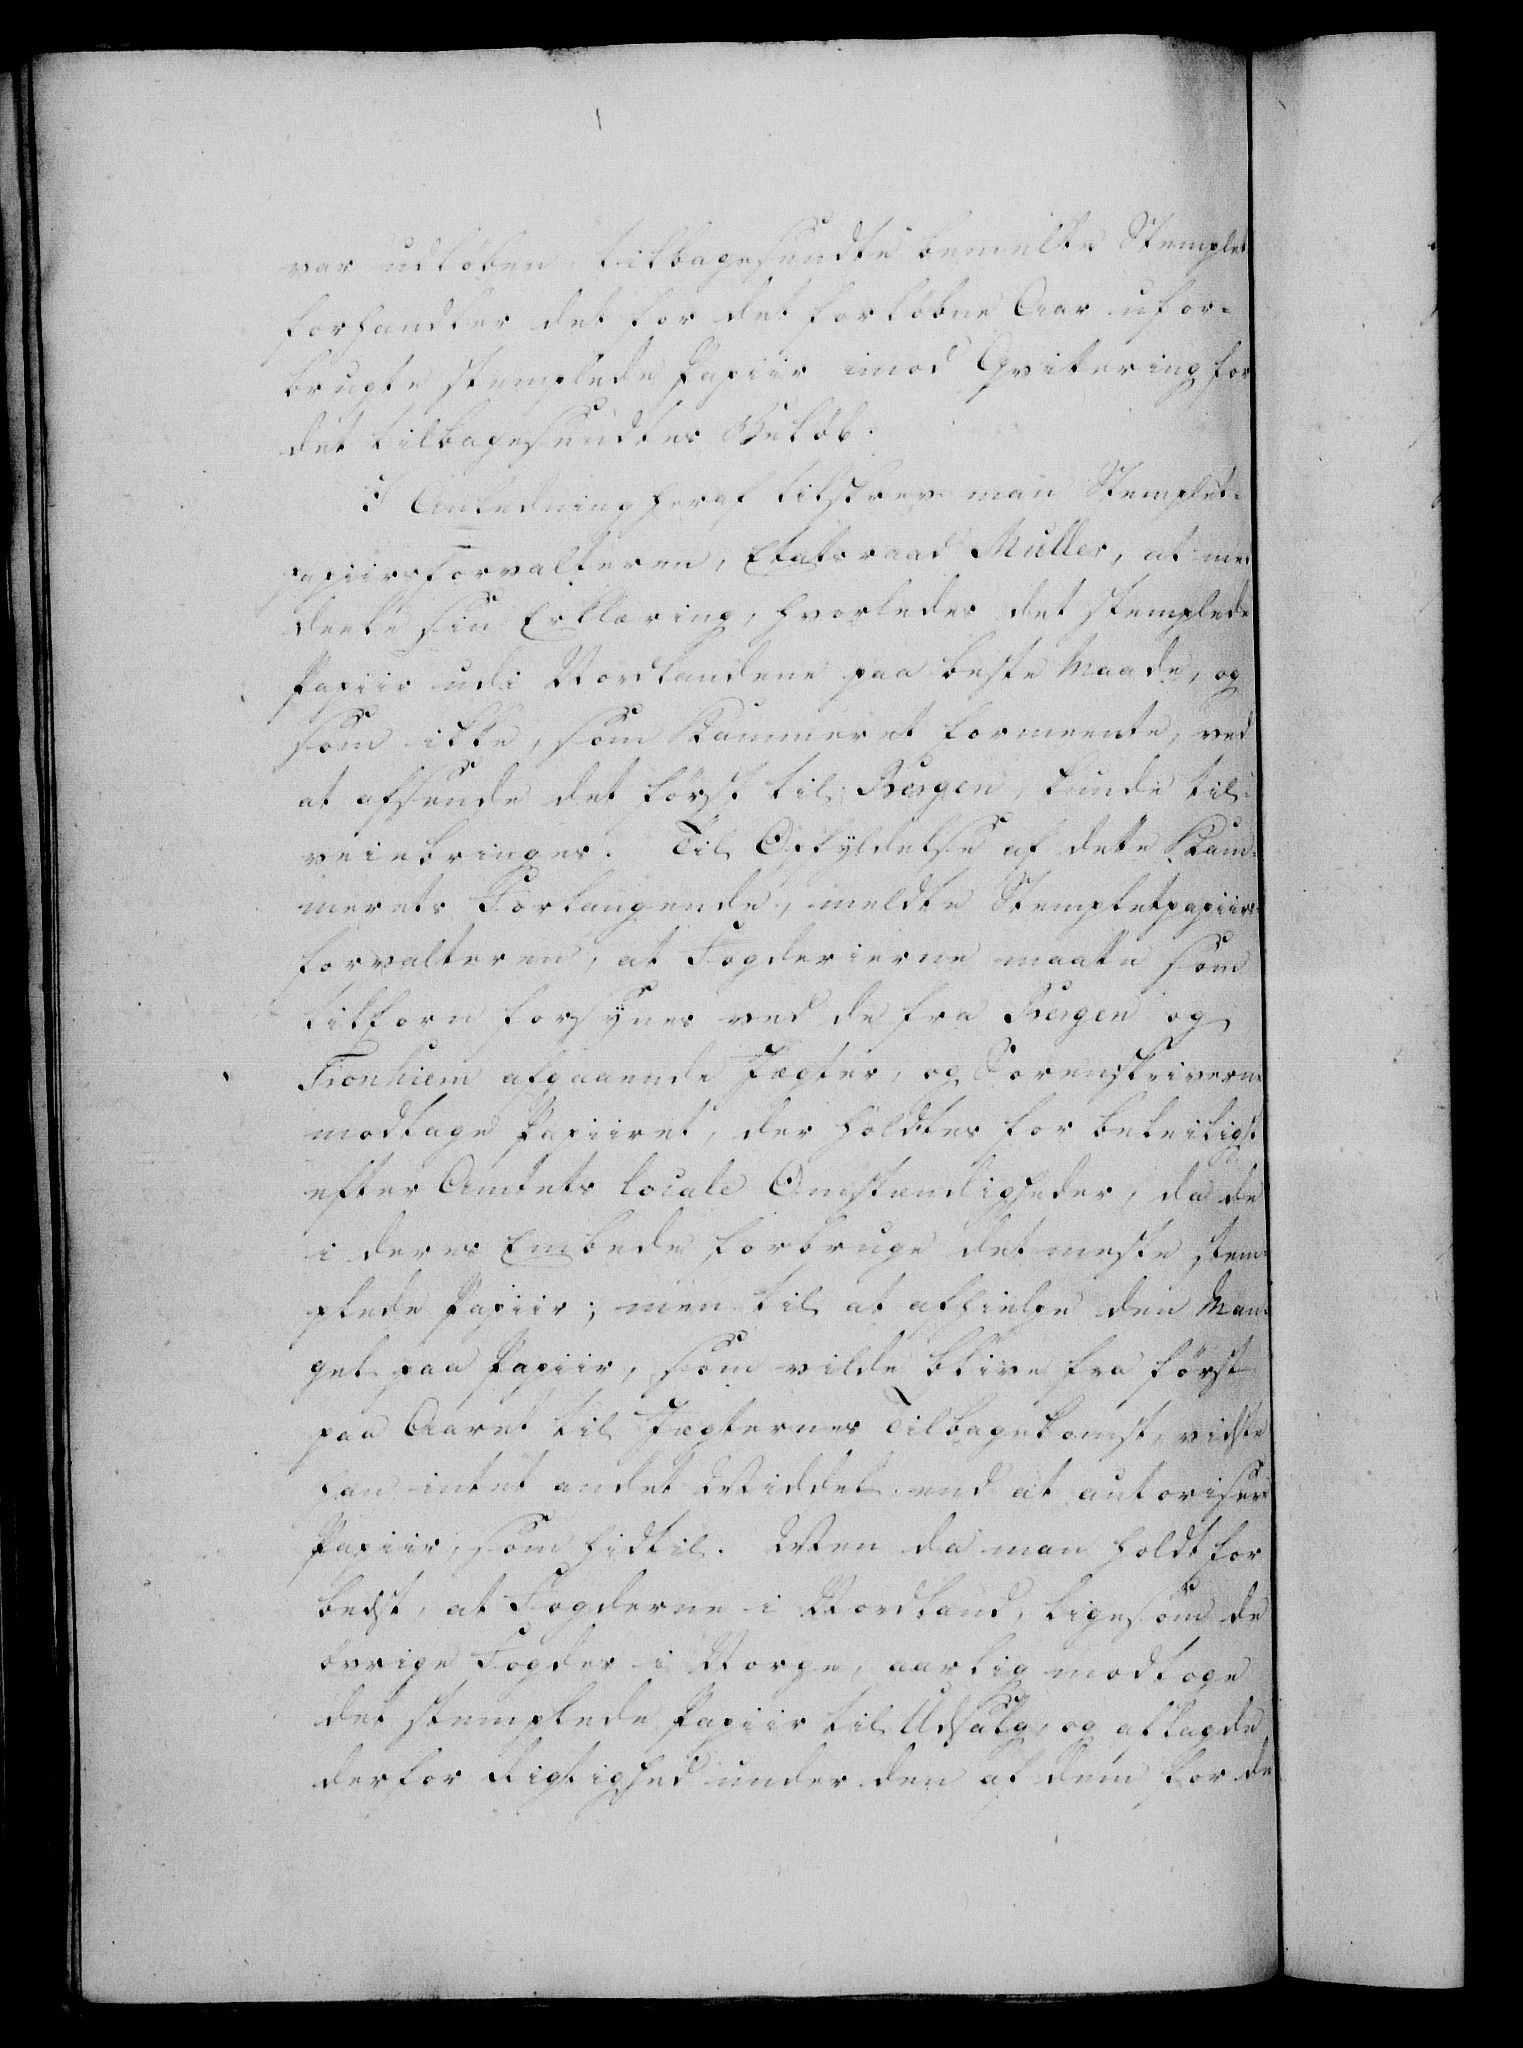 var udløben, tilbagesendte bemelte Stemplet
forhandler det for det forløbne Aar ufor-
brugte stemplede Papiir imod Qvitering for
det tilbagesendtes Beløb.
I Anledning heraf tilskrev man Stemplet-
papiirsforvalteren, Etatsraad Müller, at med
deele sin Erklæring, hvorledes det stemplede
Papiir udi Nordlandene paa beste Maade, og
som ikke, som Kammeret formeente, ved
at afsende det først til Bergen, kunde til-
veiebringes. Til Opfyldelse af dette Kam-
merets Forlangende, meldte Stempletpapiirs-
forvalteren, at Fogderierne maatte som
tilforn forsÿnes ved de fra Bergen og
Tronhiem afgaaende Jægter, og Sorenskriverne
modtage Papiiret, der holdtes for beleiligst
efter Amtets locale Omstændigheder, da de
i deres Embede forbruge det meste stem-
plede Papiir; men til at afhielpe den Man-
gel paa Papiir, som vilde blive fra først
paa Aaret til Jægternes Tilbagekomst, vidste
han intet andet Middel end at autorisere
Papiir, som hidtil. Men da man holdt for
bedst, at Fogderne i Nordland, ligesom de
øvrige Fogder i Norge, aarlig modtoge
det stemplede Papiir til Udsalg, og aflagde
derfor Rigtighed under den af dem for de